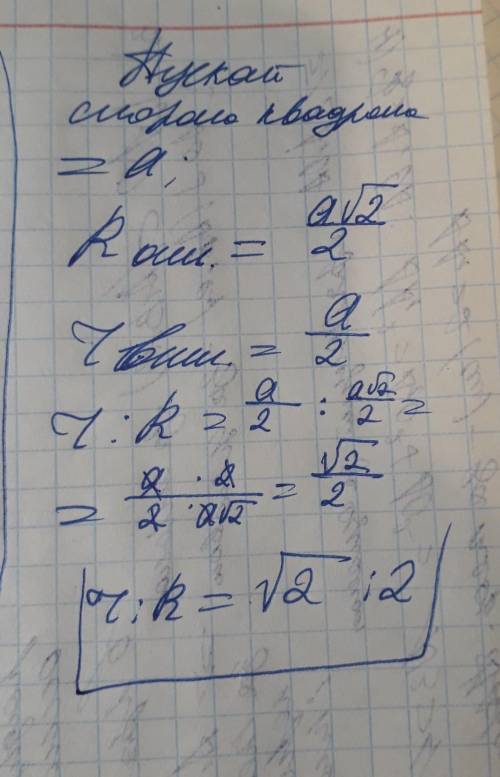 Пускай
сторона квадрата
= a;
R оп. = a√2/2
r впис. = a/2
r : R = a/2 : a√2/2 =
= a · 2 / 2 · a√2 = √2/2
r : R = √2 : 2